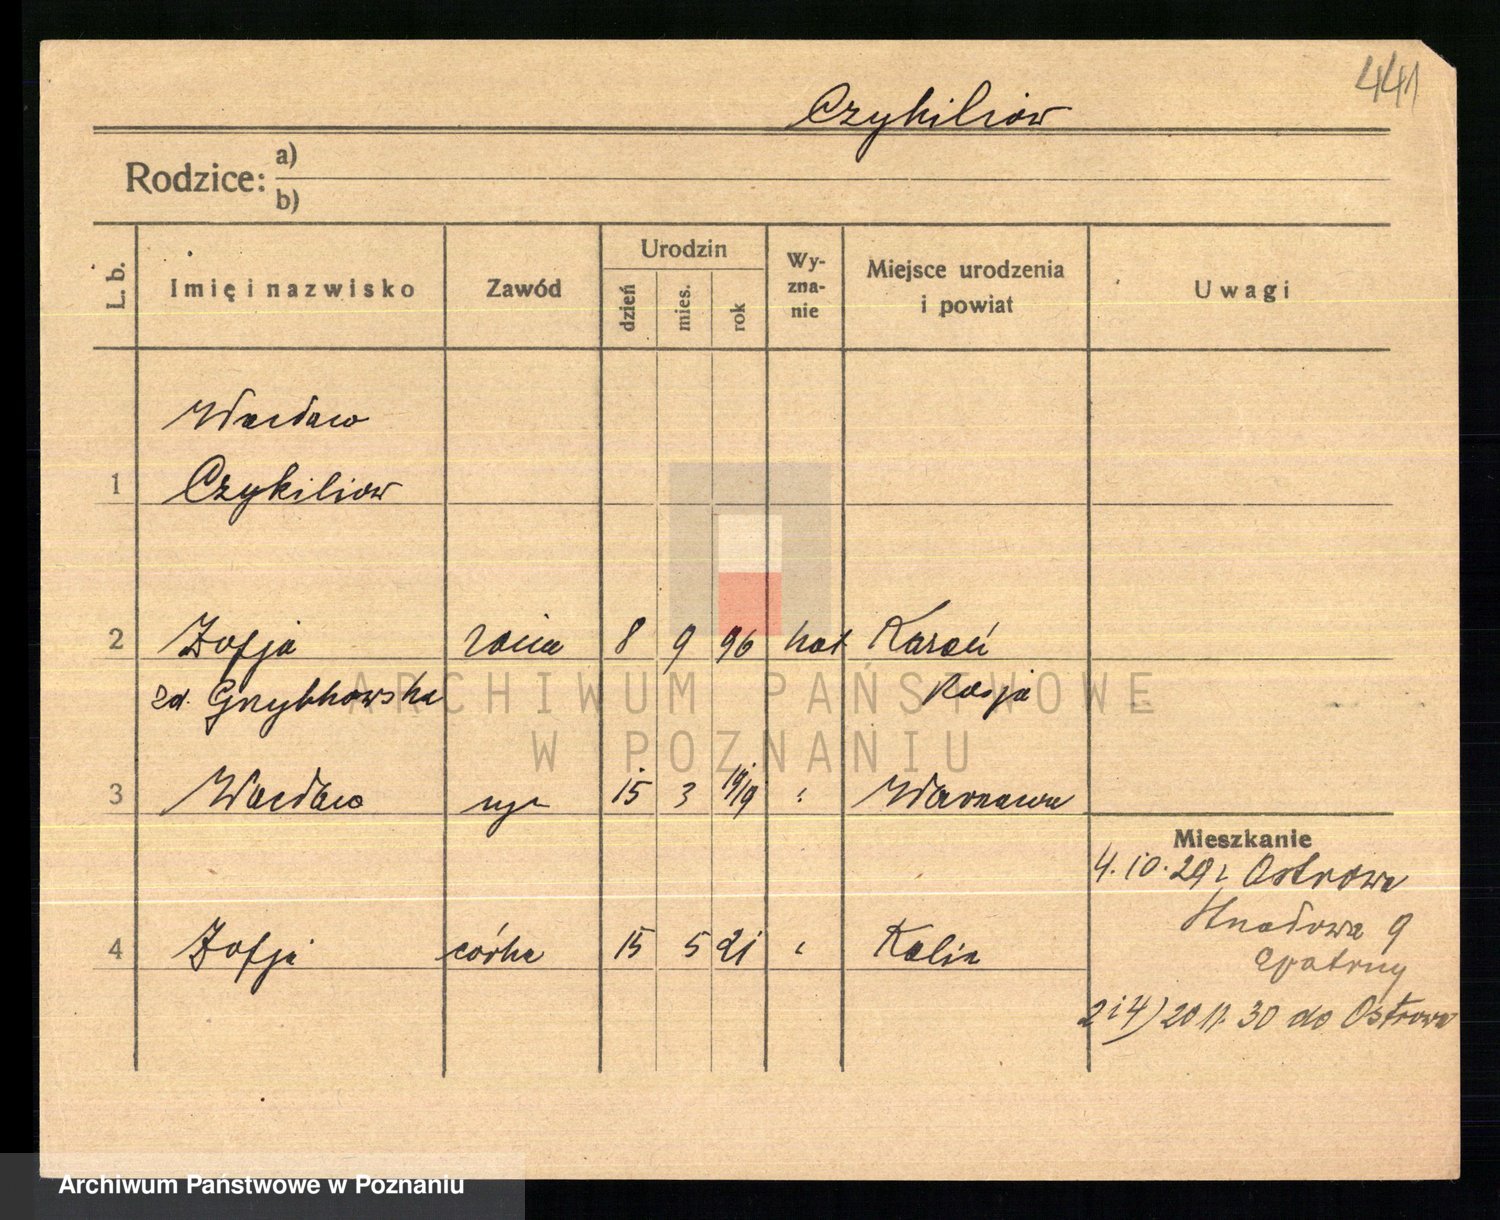 441
Czykiliow
Rodzice: a)
b)
L. b.
Imię i nazwisko
Zawód
Urodzin
dzień
mies.
rok
Wy-
zna-
nie
Miejsce urodzenia
i powiat
Uwagi
Wacław
1 Czykiliow
2 Zofja żona 8 9 96 kat Kazań
zd. Grzybkowska Rosja
3 Wacław syn 15 3 1919 " Warszawa
Mieszkanie
4.10.29 z Ostrowa
9
4 Zofja córka 15 5 21 " Kalisz
2 i 4) 20 11. 30 do Ostrowa
ARCHIWUM PAŃSTWOWE
W POZNANIU
Archiwum Państwowe w Poznaniu